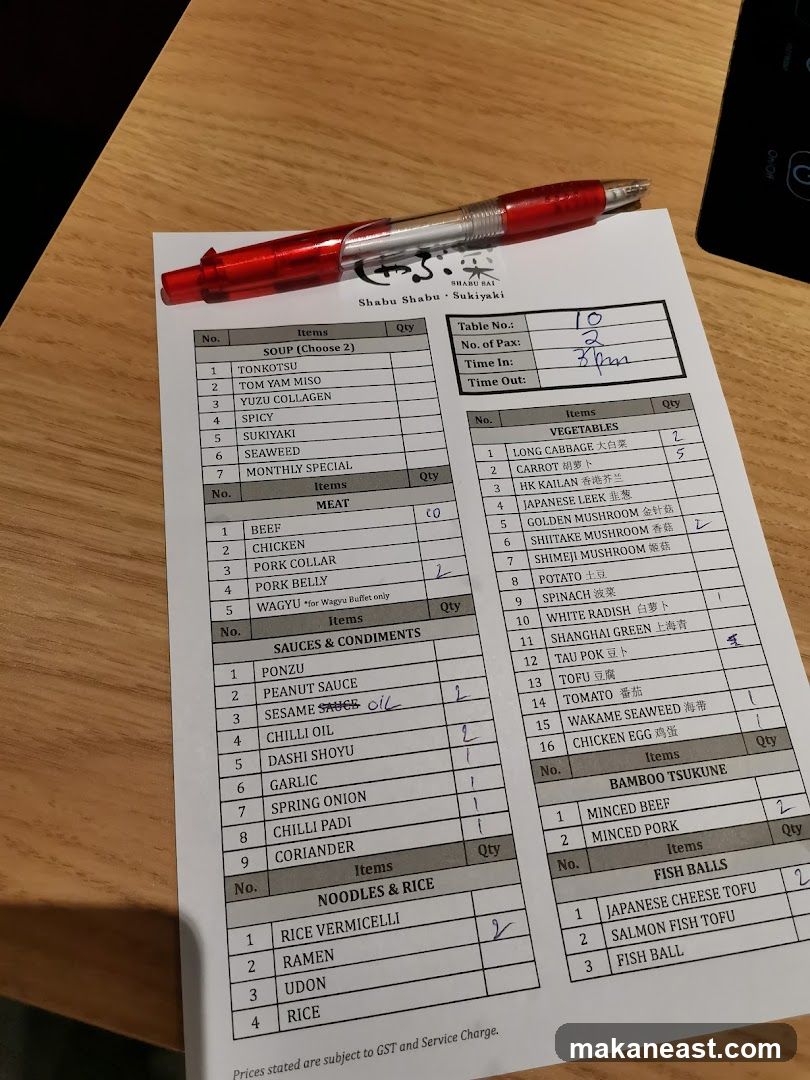 しゃぶ菜
SHABU SAI
Shabu Shabu · Sukiyaki
Table No.: 10
No. of Pax: 2
Time In: 3pm
Time Out:
No. Items Qty
SOUP (Choose 2)
1 TONKOTSU
2 TOM YAM MISO
3 YUZU COLLAGEN
4 SPICY
5 SUKIYAKI
6 SEAWEED
7 MONTHLY SPECIAL
No. Items Qty
MEAT
1 BEEF 10
2 CHICKEN
3 PORK COLLAR
4 PORK BELLY 2
5 WAGYU *for Wagyu Buffet only
No. Items Qty
SAUCES & CONDIMENTS
1 PONZU
2 PEANUT SAUCE
3 SESAME SAUCE OIL 2
4 CHILLI OIL
5 DASHI SHOYU 2
6 GARLIC 1
7 SPRING ONION 1
8 CHILLI PADI 1
9 CORIANDER 1
No. Items Qty
NOODLES & RICE
1 RICE VERMICELLI
2 RAMEN 2
3 UDON
4 RICE
Prices stated are subject to GST and Service Charge.
No. Items Qty
VEGETABLES
1 LONG CABBAGE 大白菜 2
2 CARROT 胡萝卜 5
3 HK KAILAN 香港芥兰
4 JAPANESE LEEK 韭葱
5 GOLDEN MUSHROOM 金针菇
6 SHIITAKE MUSHROOM 香菇 2
7 SHIMEJI MUSHROOM 姬菇
8 POTATO 土豆
9 SPINACH 菠菜
10 WHITE RADISH 白萝卜 1
11 SHANGHAI GREEN 上海青
12 TAU POK 豆卜
13 TOFU 豆腐
14 TOMATO 番茄
15 WAKAME SEAWEED 海带 1
16 CHICKEN EGG 鸡蛋 1
No. Items Qty
BAMBOO TSUKUNE
1 MINCED BEEF
2 MINCED PORK 2
No. Items Qty
FISH BALLS
1 JAPANESE CHEESE TOFU 2
2 SALMON FISH TOFU
3 FISH BALL
On/Off
makaneast.com